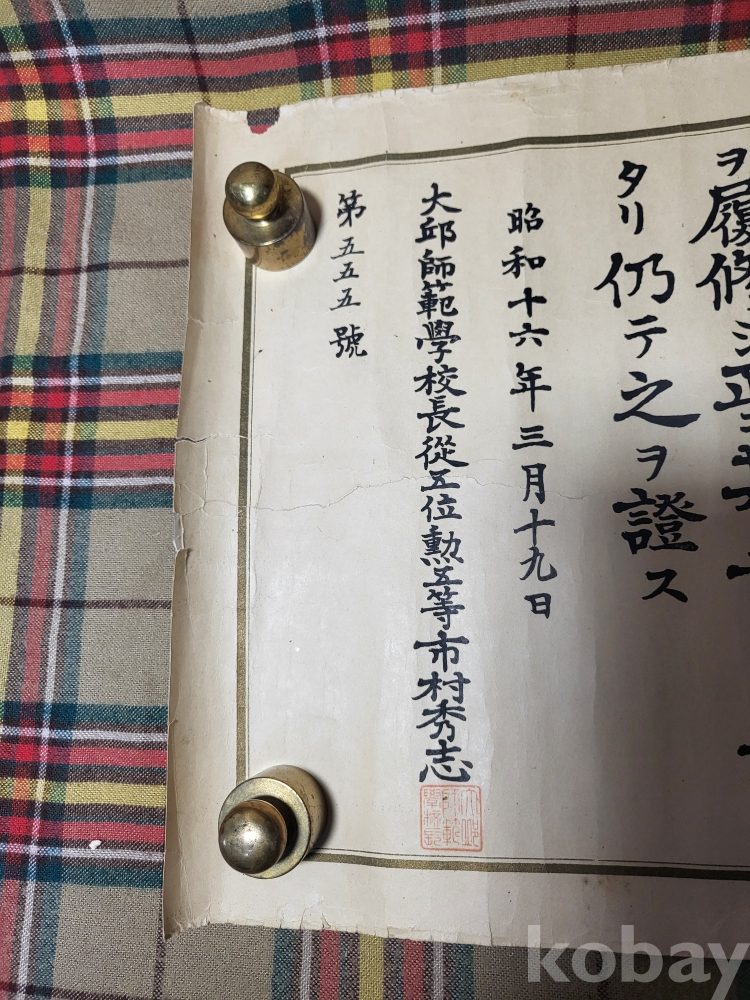 ヲ履修シ正ニ其
タリ仍テ之ヲ證ス
昭和十六年三月十九日
大邱師範學校長從五位勲五等市村秀志
大邱師範學校長
第五五五號
kobay